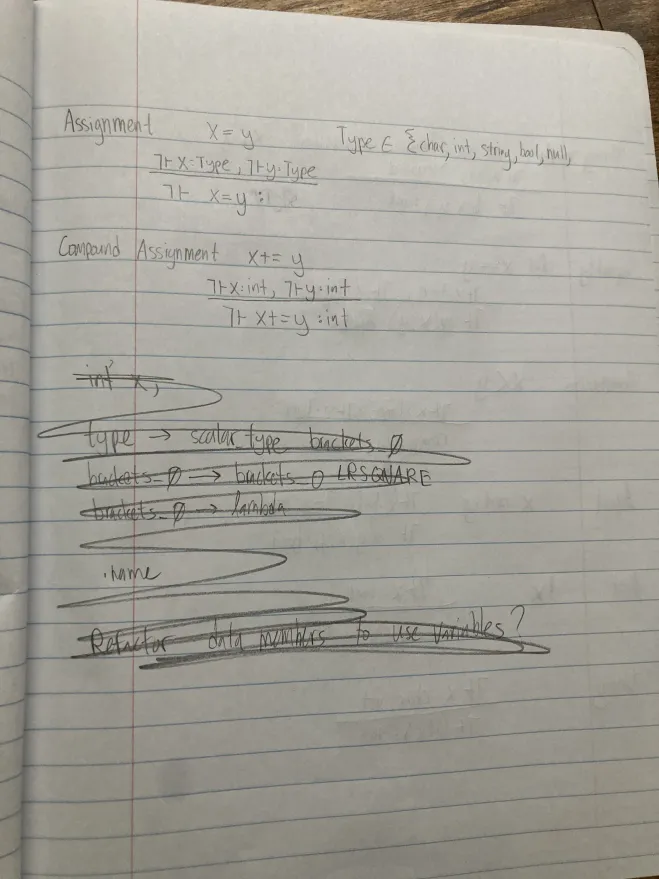 Assignment x = y Type ∈ {char, int, string, bool, null,
⅂⊢ x:Type, ⅂⊢ y:Type
⅂⊢ x=y :
Compound Assignment x+= y
⅂⊢ x:int, ⅂⊢ y:int
⅂⊢ x+=y :int
int x;
type → scalar_type brackets_∅
brackets_∅ → brackets_∅ LRSQUARE
brackets_∅ → lambda
.name
Refactor data members to use variables?